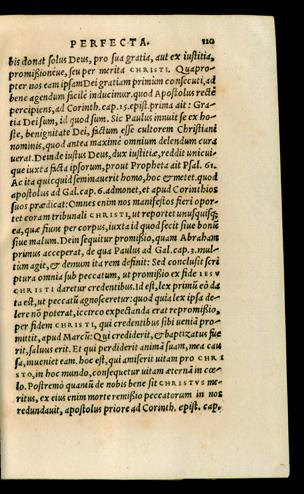 PERFECTA. 110
bis donat solus Deus, pro sua gratia, aut ex iustitia,
promißioneue, seu per merita CHRISTI. Quapro-
pter nos eam ipsam Dei gratiam primùm consecuti, ad
bene agendum facilè inducimur. quod Apostolus rectè
percipiens, ad Corinth. cap. 15. epist. prima ait: Gra-
tia Dei sum, id quod sum. Sic Paulus innuit se ex ho-
ste, benignitate Dei, factum esse cultorem Christiani
nominis, quod antea maximè omnium delendum cura
uerat. Dein de iustus Deus, dux iustitiæ, reddit unicui-
que iuxta facta ipsorum, prout Propheta ait Psal. 61.
Ac ita quicquid seminauerit homo, hoc & metet. quod
apostolus ad Gal. cap. 6. admonet, et apud Corinthios
suos prædicat: Omnes enim nos manifestos fieri opor-
tet coram tribunali CHRISTI, ut reportet unusquisq;
ea, quæ fiunt per corpus, iuxta id quod fecit siue bonũ
siue malum. Dein sequitur promißio, quam Abraham
primus acceperat, de qua Paulus ad Gal. cap. 3. mul-
tum agit, & demum ita rem definit: Sed conclusit scri
ptura omnia sub peccatum, ut promißio ex fide IESV
CHRISTI daretur credentibus. Id est, lex primũ eò da
ta est, ut peccatũ agnosceretur: quod quia lex ipsa de-
lere nõ poterat, iccirco expectanda erat repromißio,
per fidem CHRISTI, qui credentibus sibi ueniã pro-
mittit, apud Marcũ: Qui crediderit, & baptizatus fue
rit, saluus erit. Et qui perdiderit animã suam, mea cau
sa, inueniet eam. hoc est, qui amiserit uitam pro CHRI
STO, in hoc mundo, consequetur uitam æternã in cœ-
lo. Postremò quantũ de nobis bene sit CHRISTVS me-
ritus, ex eius enim morte remißio peccatorum in nos
redundauit, apostolus priore ad Corinth. epist. cap.